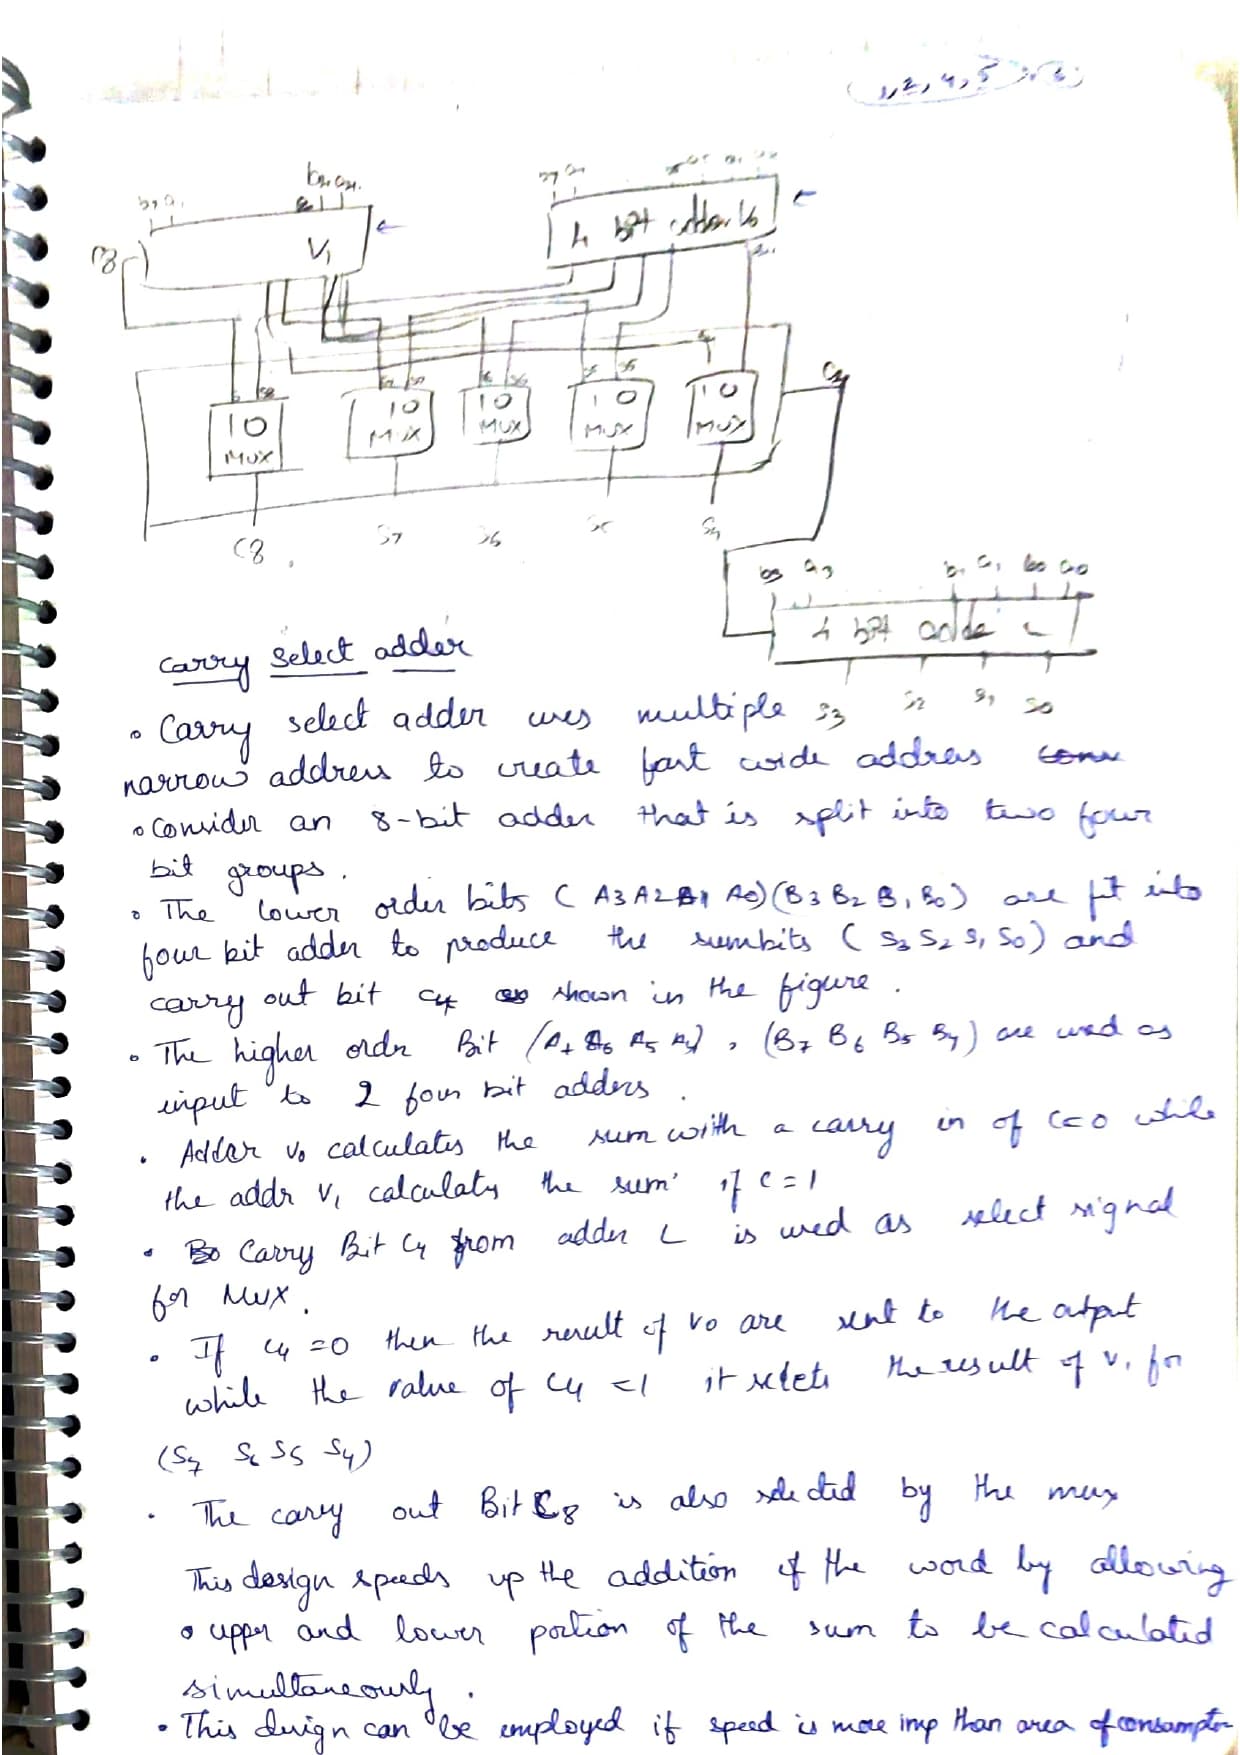 1, 2, 4, 5
b7 a7
V1
C8
4 bit adder V0
C4
1 0
MUX
1 0
MUX
1 0
MUX
1 0
MUX
1 0
MUX
C8
S7
S6
S5
S4
b3 a3 b1 a1 b0 a0
4 bit adde L
S3 S2 S1 S0
Carry Select adder
• Carry select adder uses multiple
narrow address to create fast wide address
• Consider an 8-bit adder that is split into two four
bit groups.
• The lower order bits ( A3 A2 A1 A0) (B3 B2 B1 B0) are fit into
four bit adder to produce the sumbits ( S3 S2 S1 S0) and
carry out bit C4 as shown in the figure.
• The higher order Bit (A7 A6 A5 A4), (B7 B6 B5 B4) are used as
input to 2 four bit adders.
• Adder V0 calculates the sum with a carry in of C=0 while
the addr V1 calculates the sum if C=1
• Carry Bit C4 from adder L is used as select signal
for MUX.
• If C4 =0 then the result of V0 are sent to the output
while the value of C4 =1 it selets the result of V1 for
(S7 S6 S5 S4)
• The carry out Bit C8 is also selected by the mux
This design speeds up the addition of the word by allowing
• upper and lower portion of the sum to be calculated
simultaneously.
• This design can be employed if speed is more imp than area of consumptn